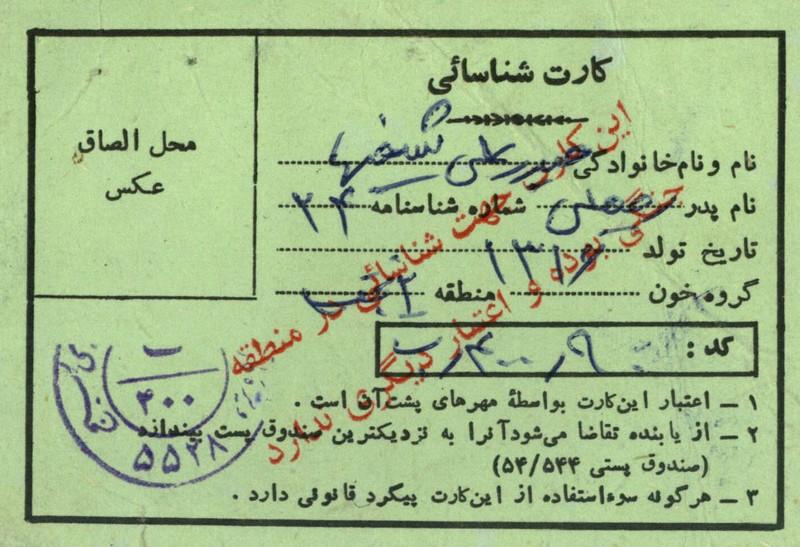 کارت شناسائی
محل الصاق
عکس
نام و نام‌خانوادگی علی
نام پدر شماره شناسنامه ۲۴
تاریخ تولد ۱۳
گروه خون منطقه
کد :
۱ ـ اعتبار این‌کارت بواسطهٔ مهرهای پشت‌آن است .
۲ ـ از یابنده تقاضا می‌شودآنرا به نزدیکترین صندوق پست بیندازد
(صندوق پستی ۵۴/۵۴۴)
۳ ـ هرگونه سوءاستفاده از این‌کارت پیگرد قانونی دارد .
این کارت جهت شناسائی در منطقه
جنگی بوده و اعتبار دیگری ندارد
ب
۴۰۰
۵۵۲۸